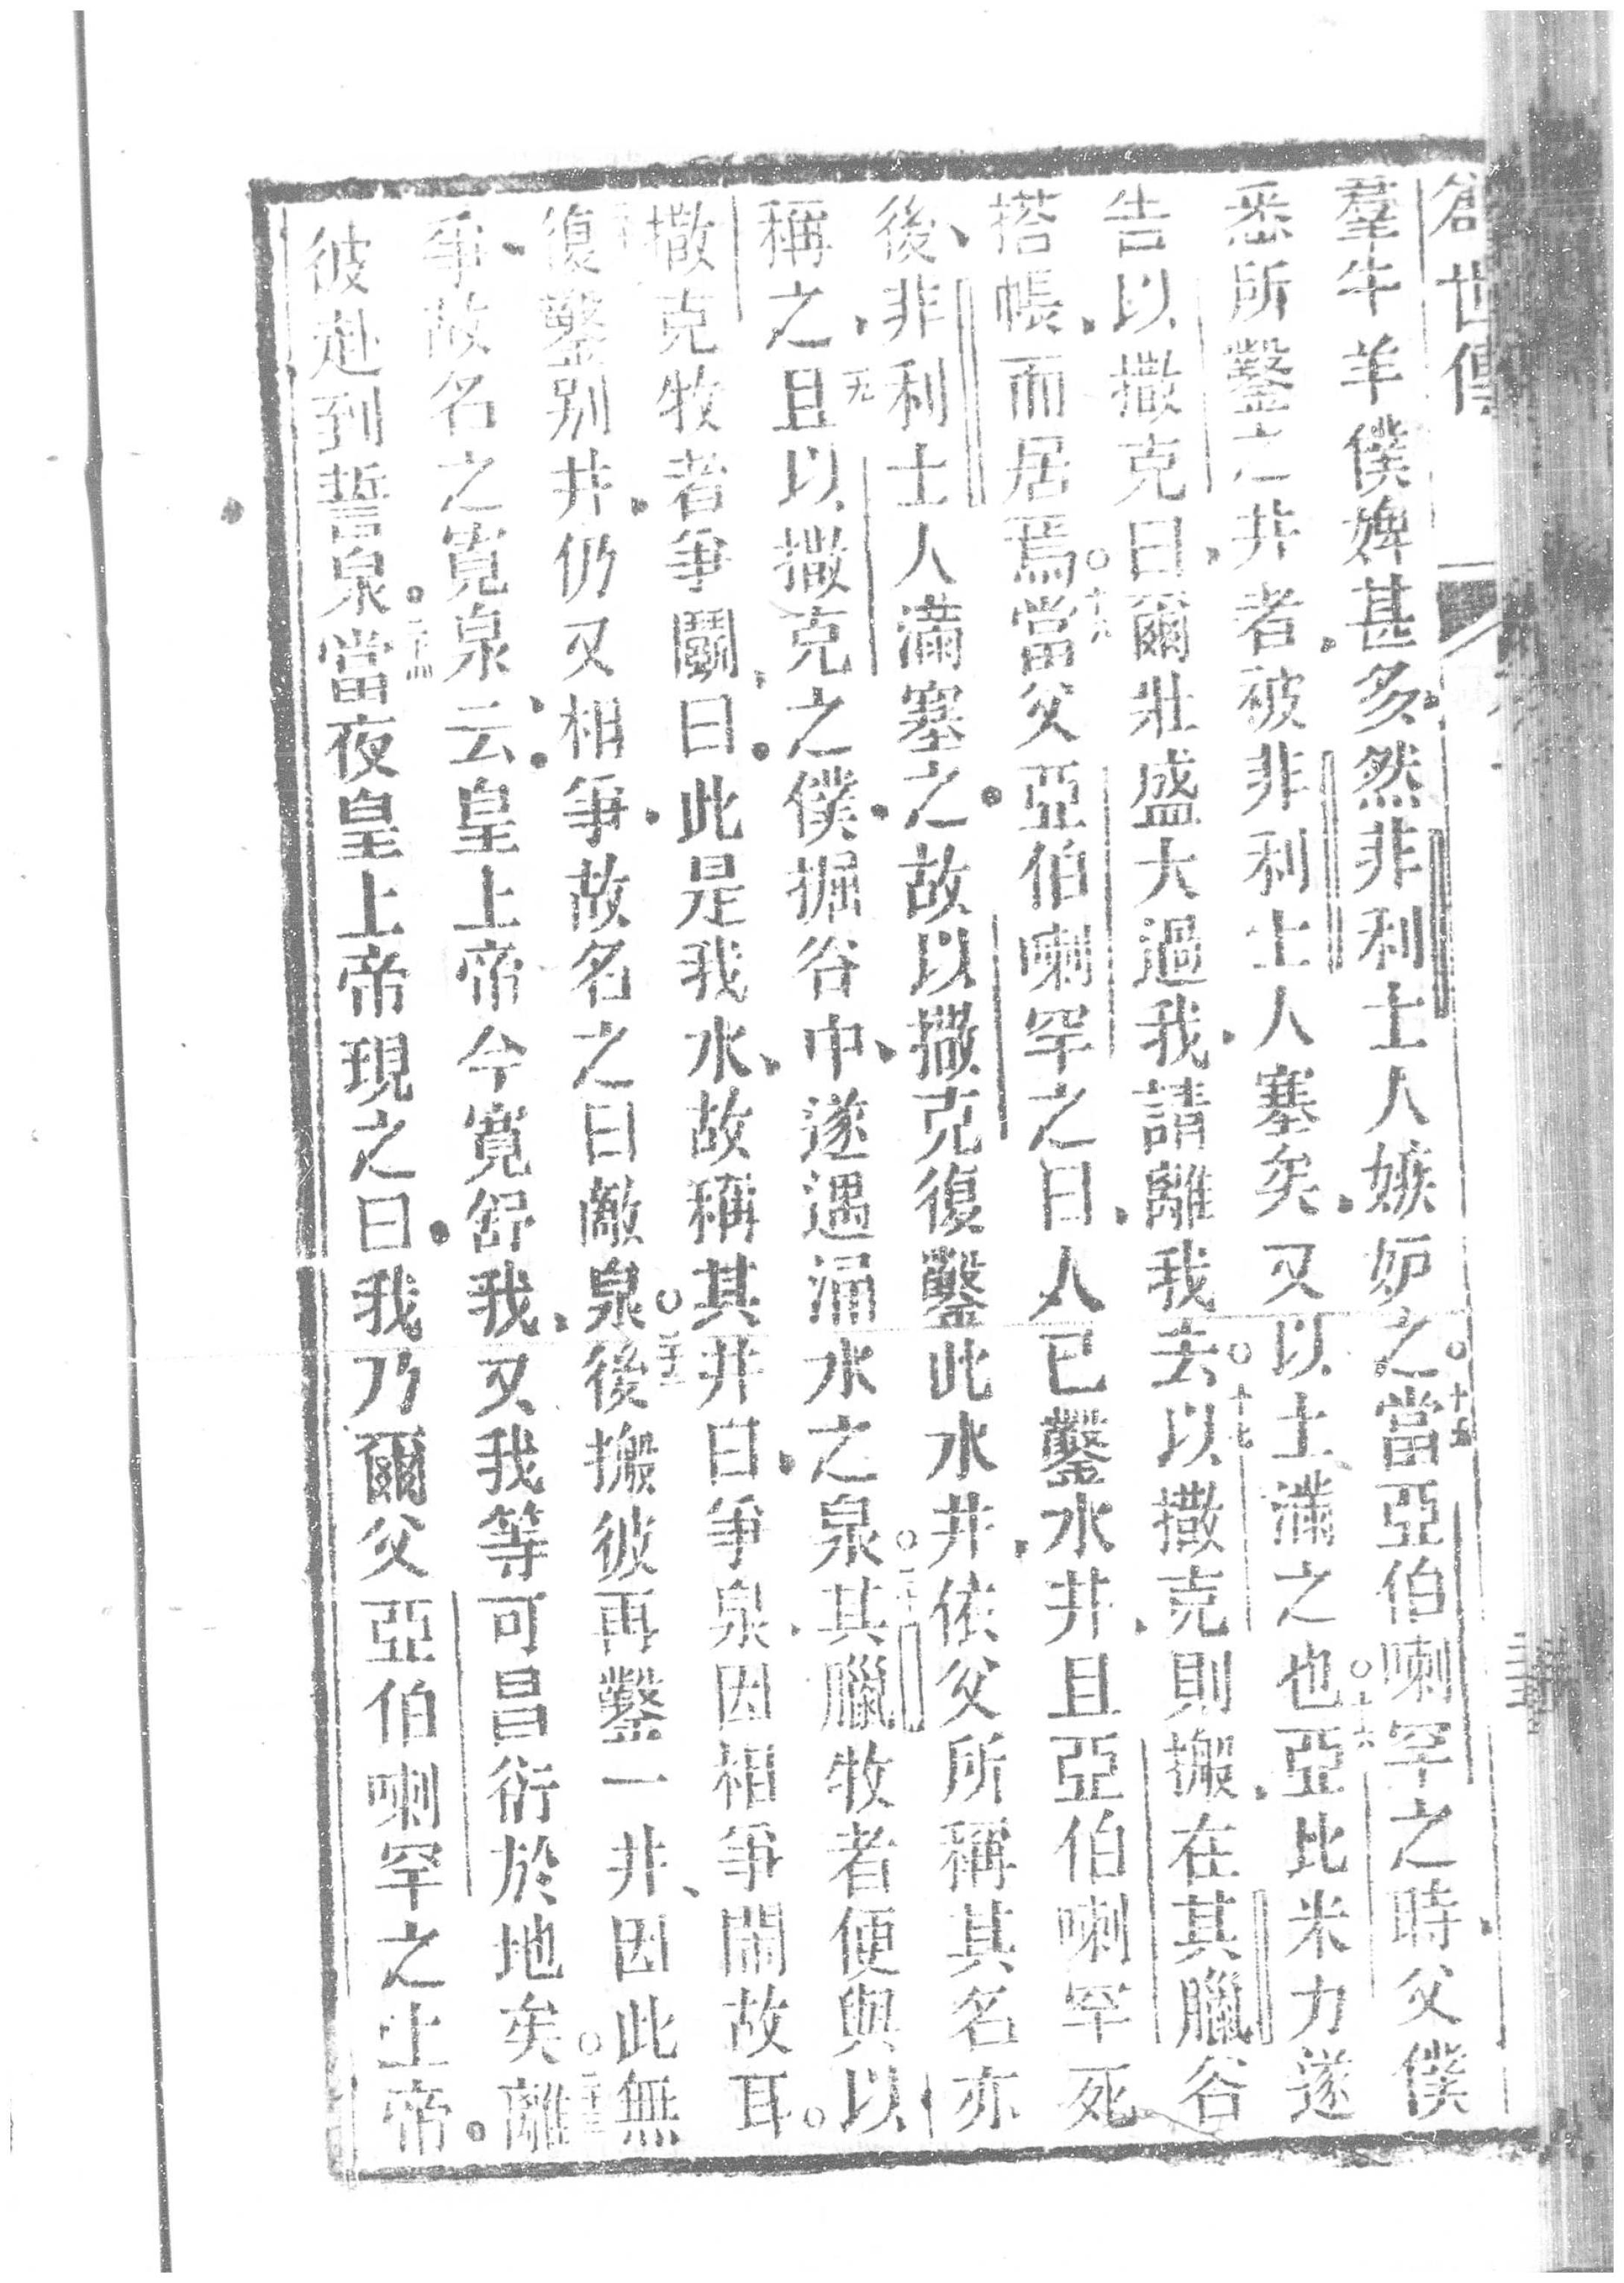 創世傳
羣牛羊僕婢甚多、然非利士人嫉妒之。十五當亞伯喇罕之時、父僕
悉所鑿之井者、被非利士人塞矣、又以土滿之也。十六亞比米力遂
告以撒克曰、爾壯盛大過我、請離我去。十七以撒克則搬、在其臘谷
搭帳、而居焉。十八當父亞伯喇罕之日、人已鑿水井、且亞伯喇罕死
後、非利士人滿塞之、故以撒克復鑿此水井、依父所稱其名、亦
稱之、十九且以撒克之僕、掘谷中、遂遇涌水之泉。二十其臘牧者便與以
撒克牧者爭鬬、曰、此是我水、故稱其井曰、爭泉、因相爭鬧故耳。
二一復鑿別井、仍又相爭、故名之曰敵泉。二二後搬彼再鑿一井、因此無
爭、故名之寬泉、云、皇上帝今寬舒我、又我等可昌衍於地矣。二三離
彼赴到誓泉。二四當夜皇上帝現之曰、我乃爾父亞伯喇罕之上帝。